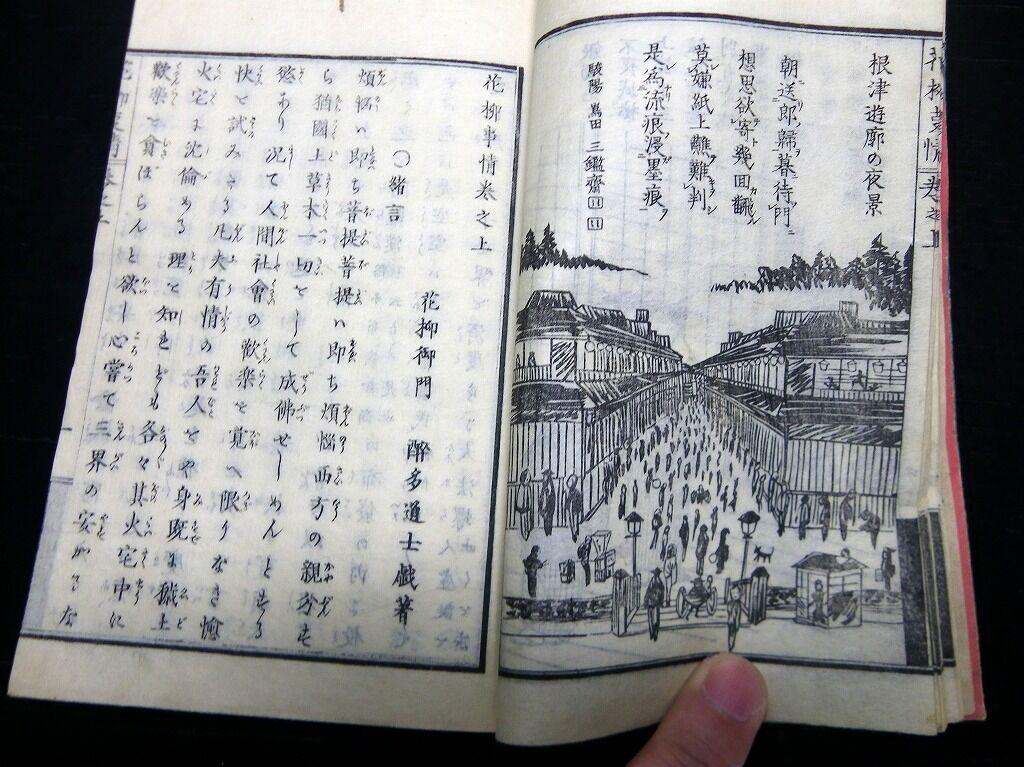 根津遊廓の夜景
朝送郎歸暮待門
想思欲寄幾回飜
莫嫌紙上難判
是爲流痕浸墨痕
駿陽 嶌田 三鑑齋
花柳事情巻之上
花柳御門 醉多道士戯著
〇緒言
煩悩ハ即ち菩提菩提ハ即ち煩悩西方の親分す
ら猶國土草木一切をして成佛せしめんとする
慾あり况て人間社會の歓樂を覚へ限りなき愉
快を試みさる凡夫有情の吾人をや身既に穢土
火宅に沈倫める理を知れども各々其火宅中に
歓樂を貪ぼらんと欲し心嘗て三界の安からな